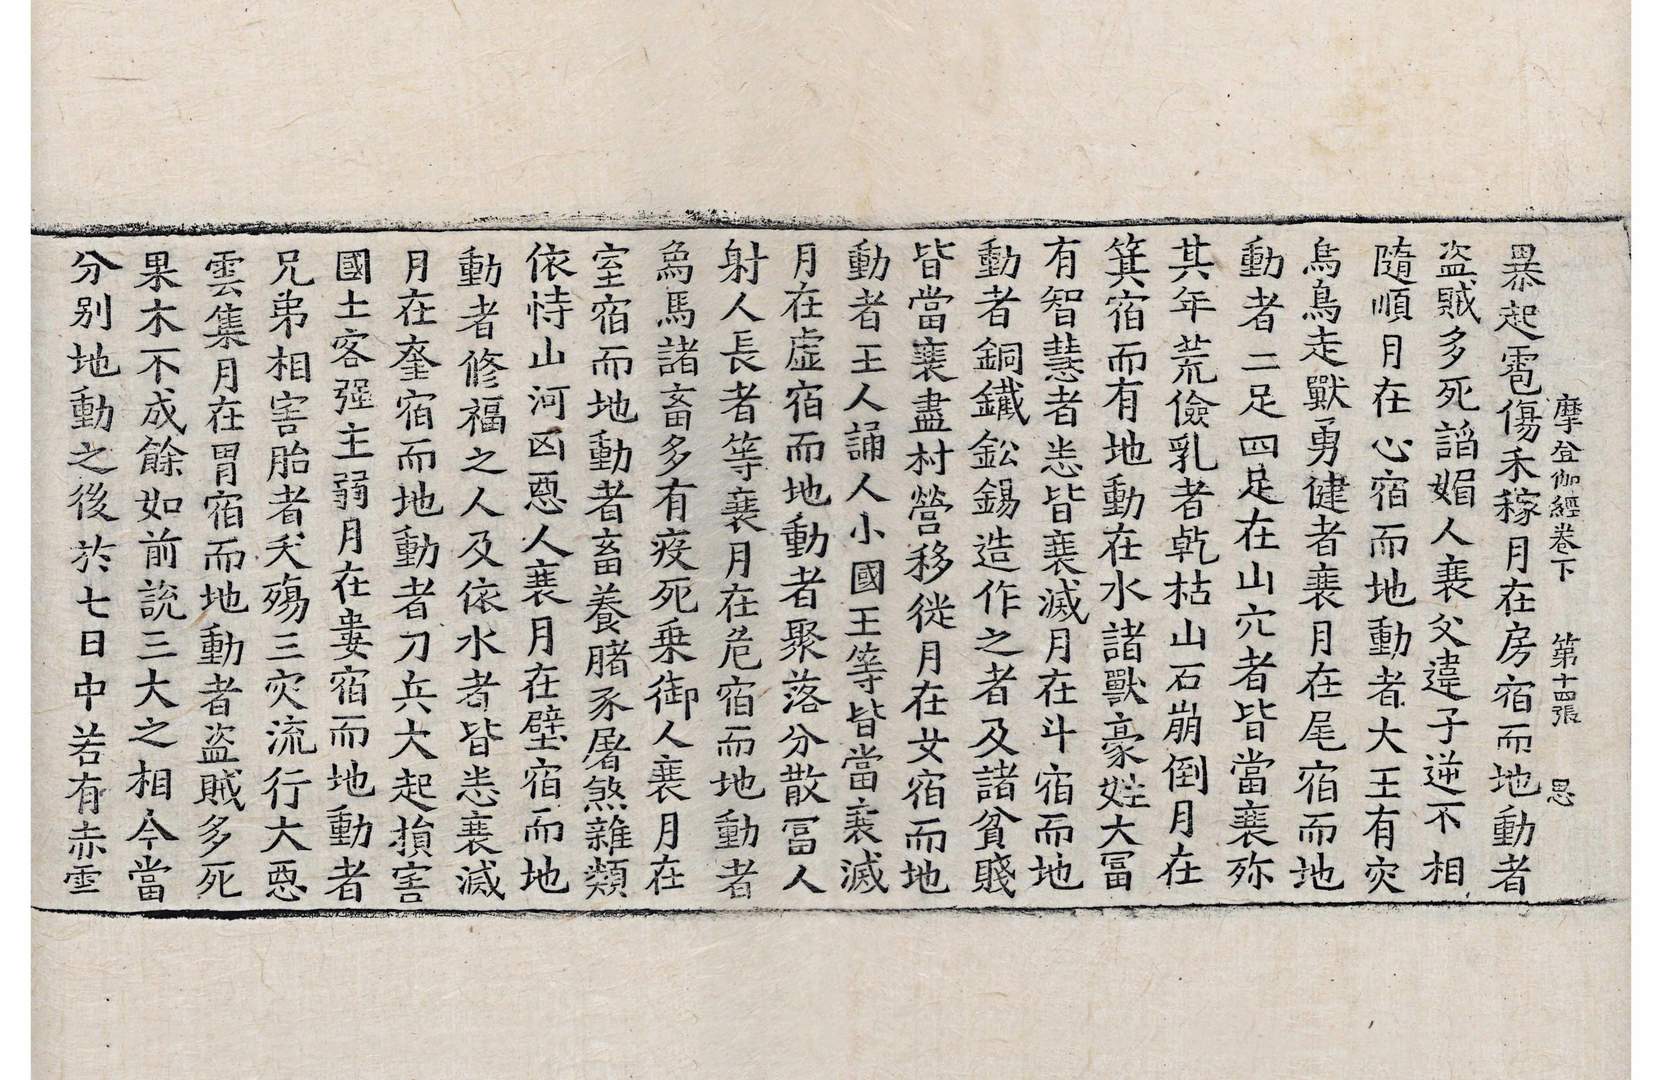 摩登伽經卷下 第十四張 恩
暴起雹傷禾稼月在房宿而地動者
盜賊多死諂媚人衰父違子逆不相
隨順月在心宿而地動者大王有灾
烏鳥走獸勇健者衰月在尾宿而地
動者二足四足在山穴者皆當衰弥
其年荒儉乳者乾枯山石崩倒月在
箕宿而有地動在水諸獸豪姓大冨
有智慧者悉皆衰滅月在斗宿而地
動者銅鐵鈆錫造作之者及諸貧賤
皆當衰盡村營移從月在女宿而地
動者王人誦人小國王等皆當衰滅
月在虛宿而地動者聚落分散冨人
射人長者等衰月在危宿而地動者
爲馬諸畜多有疫死乗御人衰月在
室宿而地動者畜養䐗豕屠煞雜類
依恃山河凶惡人衰月在壁宿而地
動者修福之人及依水者皆悉衰滅
月在奎宿而地動者刀兵大起損害
國土客强主弱月在婁宿而地動者
兄弟相害胎者夭殤三灾流行大惡
雲集月在胃宿而地動者盜賊多死
果木不成餘如前說三大之相今當
分别地動之後於七日中若有赤雲